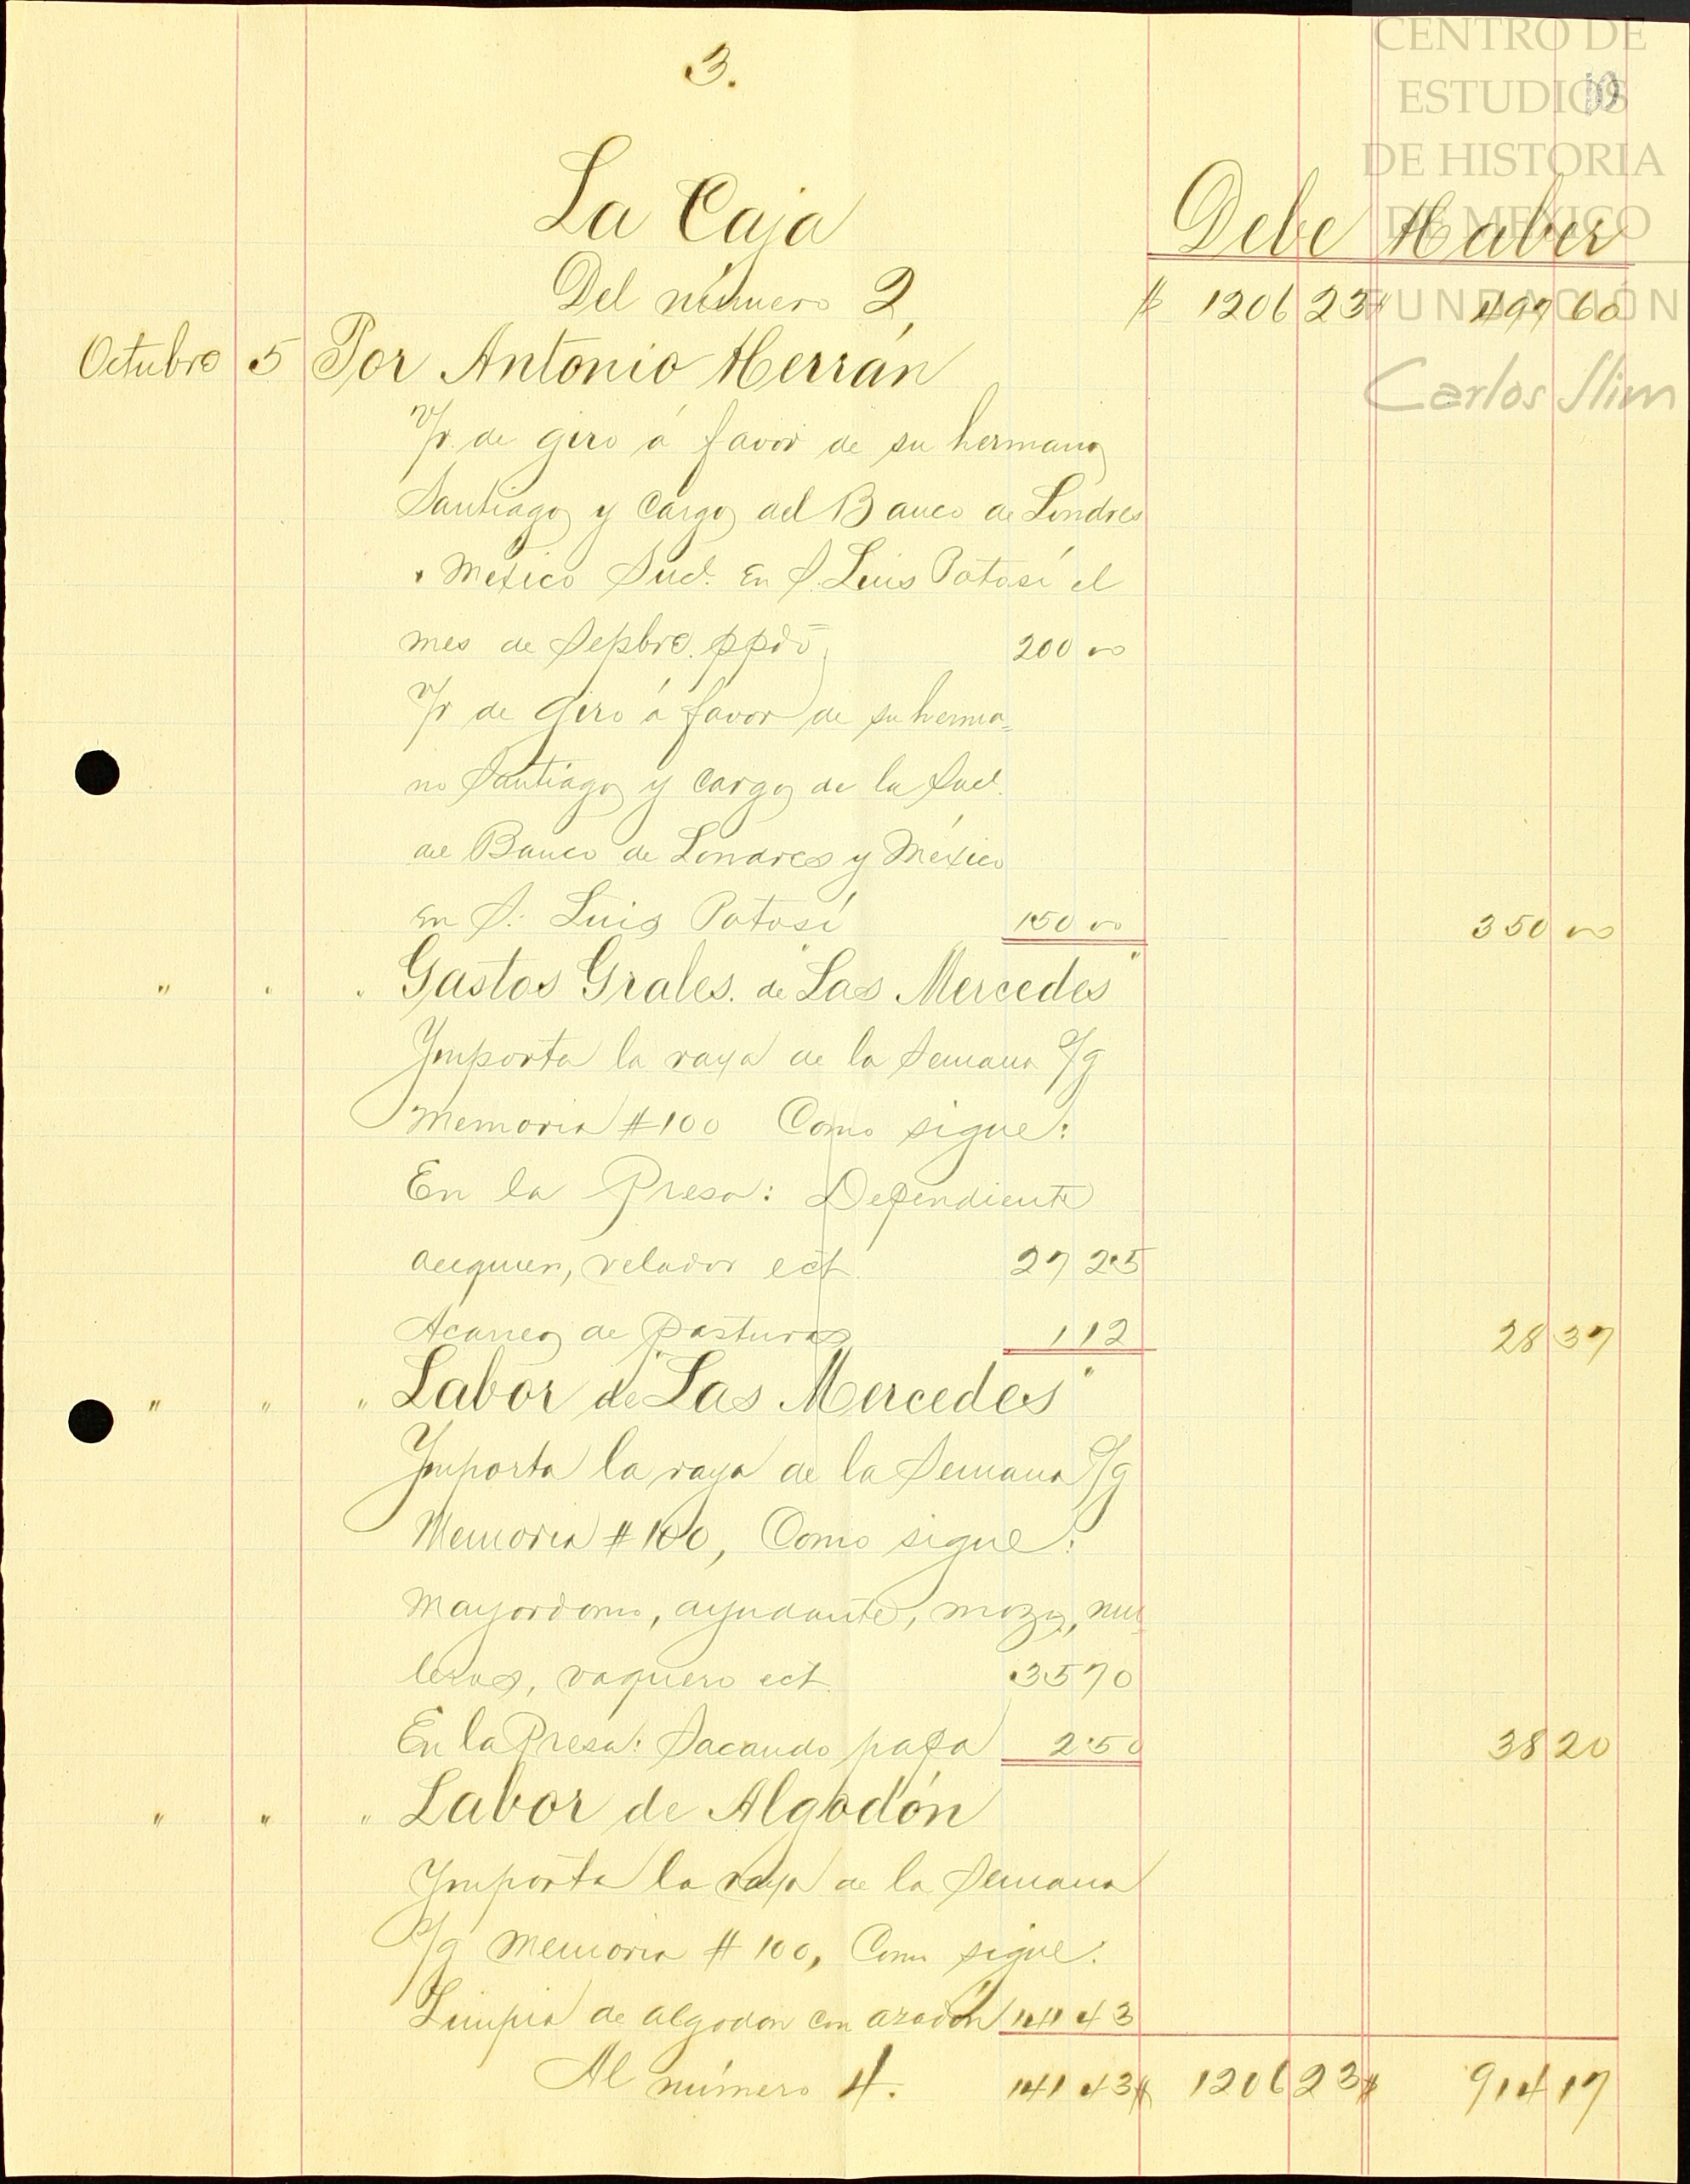 3.
CENTRO DE
ESTUDIOS
DE HISTORIA
DE MEXICO
FUNDACIÓN
Carlos Slim
La Caja
Debe Haber
Del número 2, $ 1206 23 $ 497 60
Octubre 5 Por Antonio Herrán
V/r. de giro á favor de su hermano
Santiago y cargo del Banco de Londres
México Sucl. En S. Luis Potosí el
mes de Sepbre. ppdo 200 00
V/r de giro á favor de su herma=
no Santiago y cargo de la Sucl.
del Banco de Londres y México
En S. Luis Potosí 150 00 350 00
" " " Gastos Grales. de "Las Mercedes"
Importa la raya de la Semana s/g
Memoria #100 Como sigue:
En la Presa: Dependiente
velador ect. 27 25
Acarreo de pasturas 1 12 28 37
" " " Labor de "Las Mercedes"
Importa la raya de la Semana s/g
Memoria #100, Como sigue:
Mayordomo, ayudante, mozo, mu=
leros, vaquero ect. 35 70
En la Presa: Sacando paja 2 50 38 20
" " " Labor de Algodón
Importa la raya de la Semana
s/g Memoria #100, Como sigue:
Limpia de algodon con aradón 141 43
Al número 4. 141 43 $ 1206 23 $ 914 17